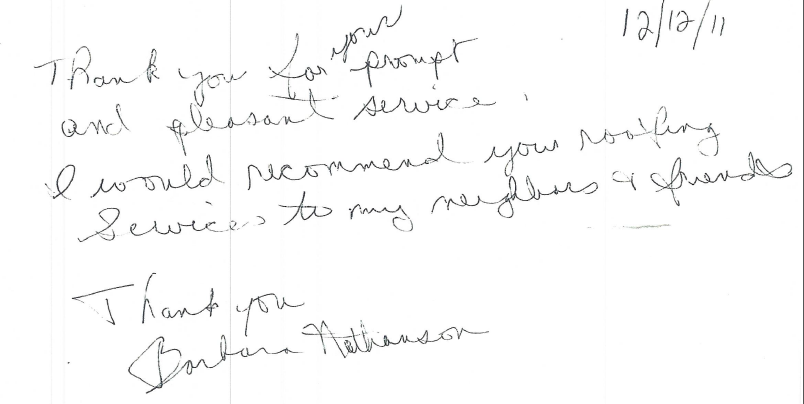 12/12/11
Thank you for your prompt
and pleasant service.
I would recommend your roofing
Services to my neighbors & friends
Thank you
Barbara Nathanson